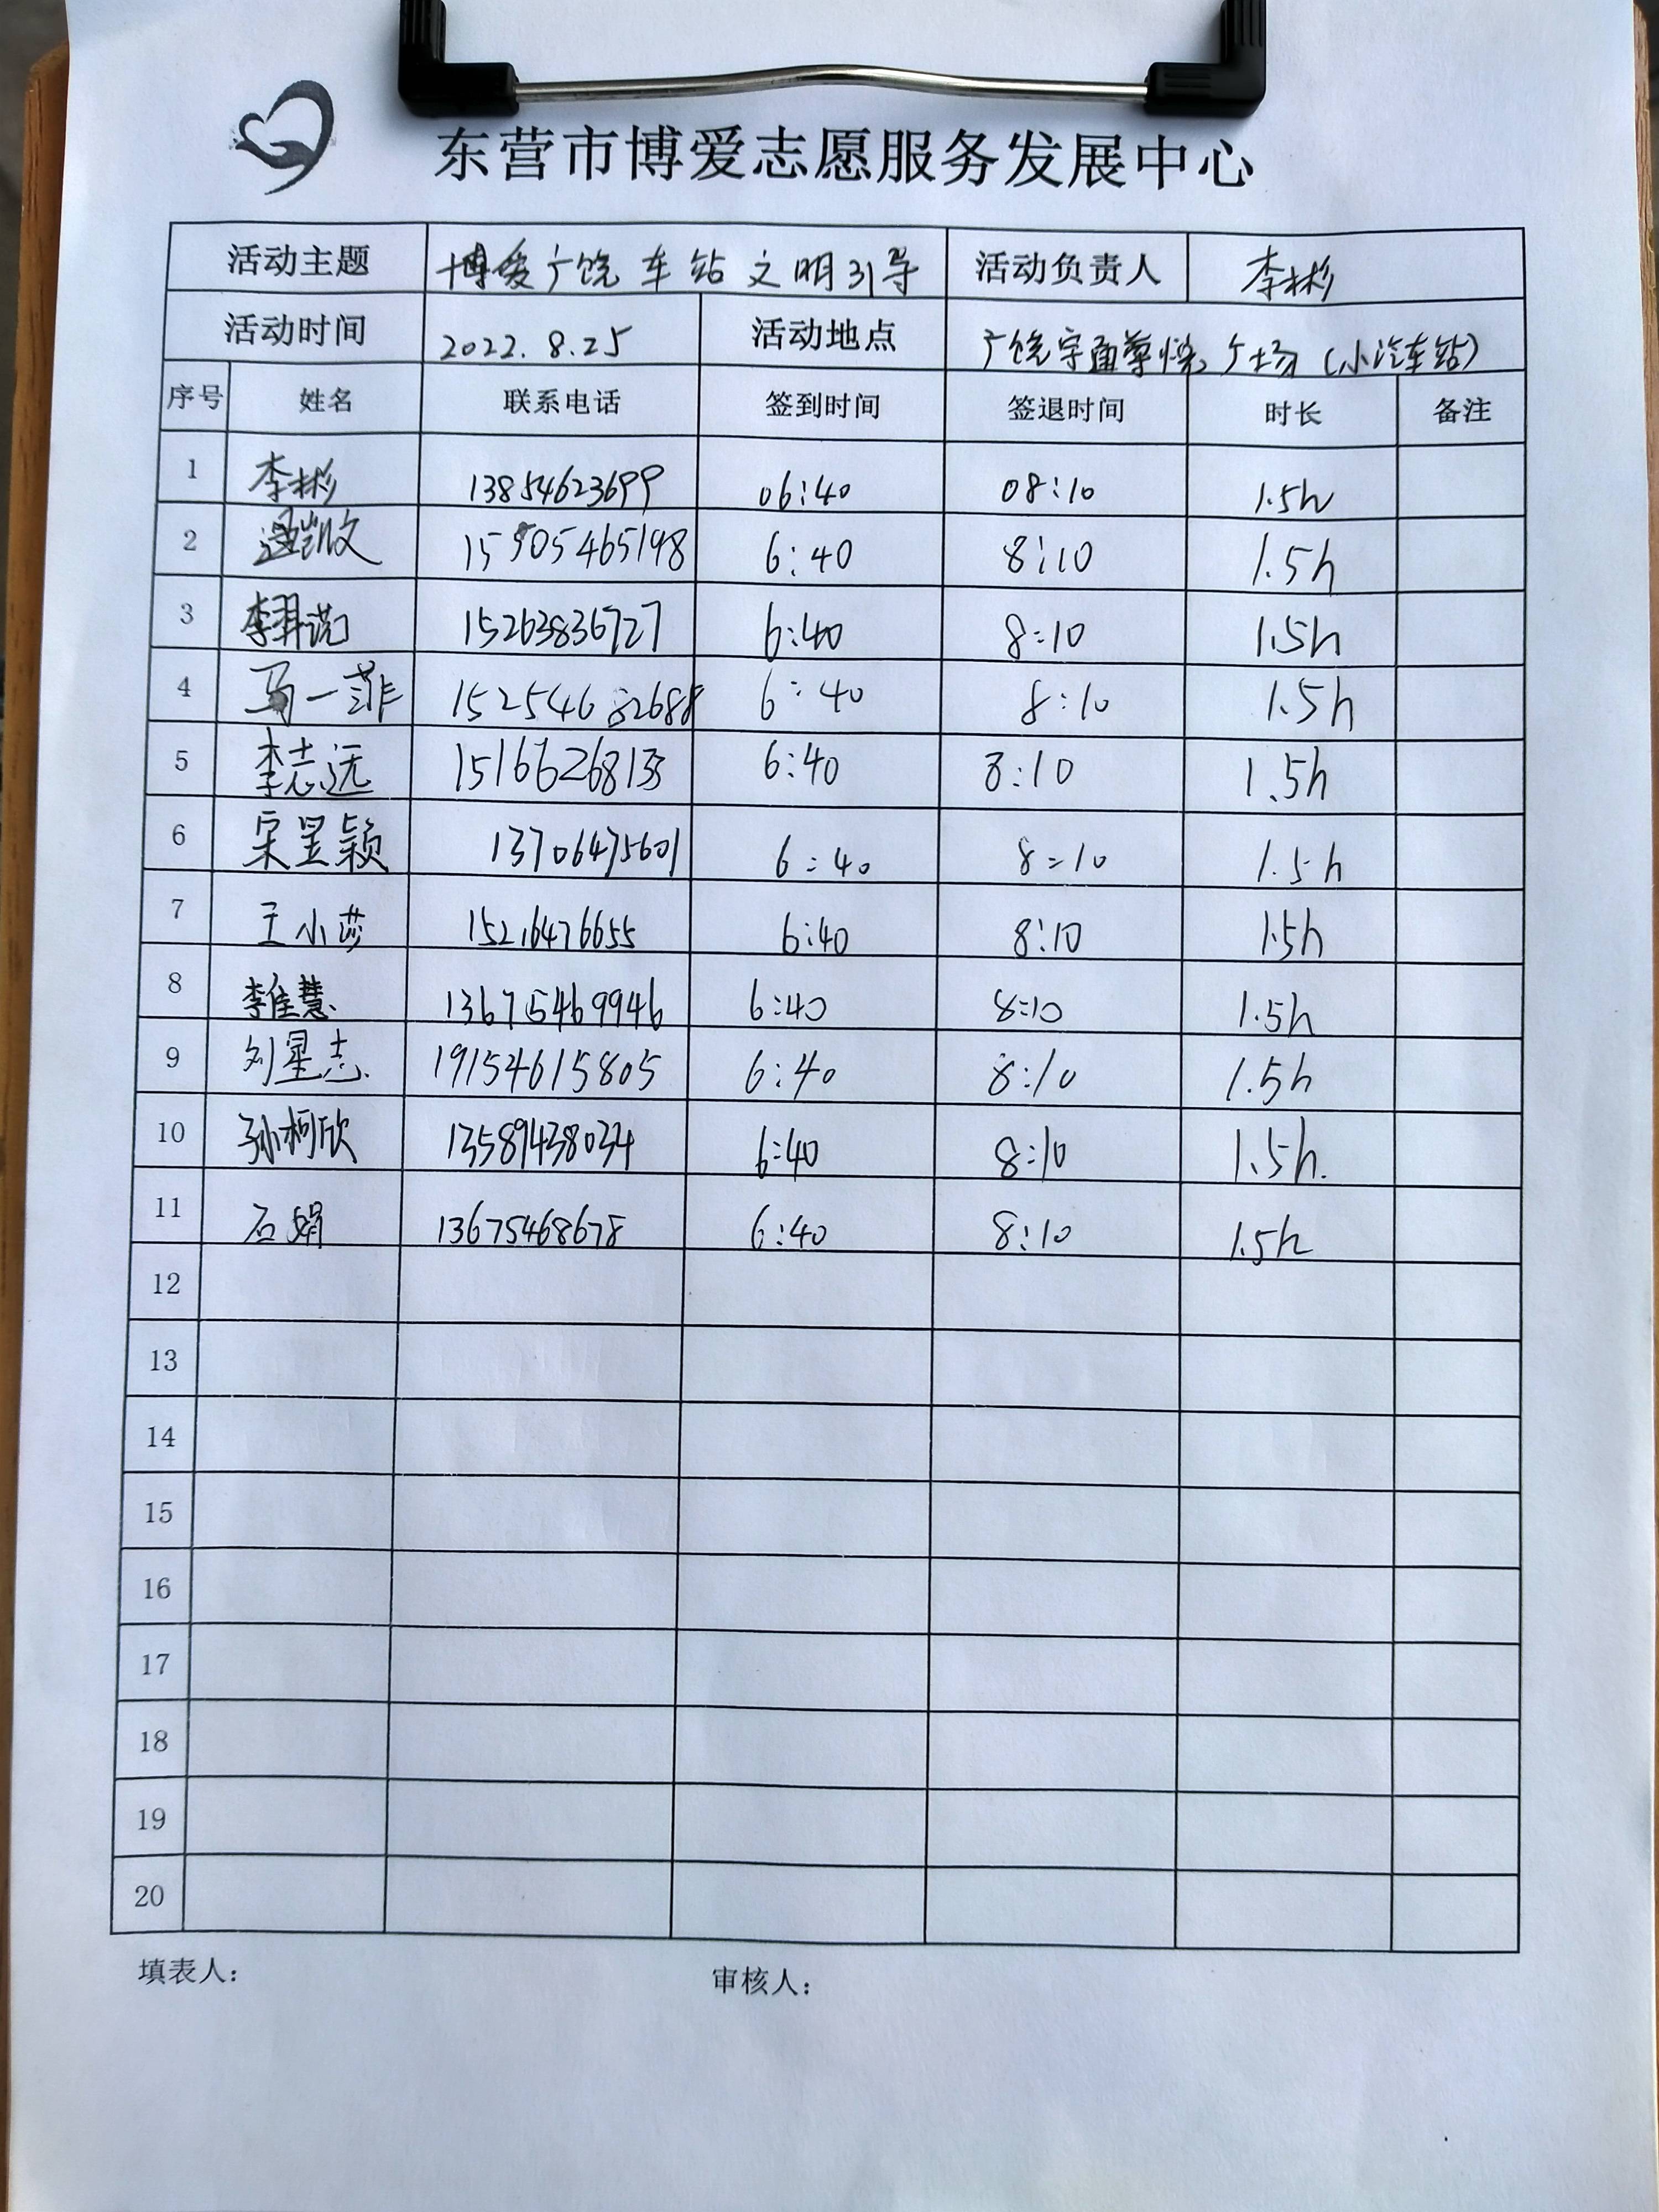 东营市博爱志愿服务发展中心
活动主题 博爱广饶车站文明引导 活动负责人 李彬
活动时间 2022.8.25 活动地点 广饶宇通 广场（小汽车站）
序号 姓名 联系电话 签到时间 签退时间 时长 备注
1 李彬 13854623699 06:40 08:10 1.5h
2 凯文 15905465198 6:40 8:10 1.5h
3 李羿诺 15263836727 6:40 8:10 1.5h
4 马一菲 6:40 8:10 1.5h
5 李志远 6:40 8:10 1.5h
6 宋昱颖 13706475601 6:40 8:10 1.5h
7 王小莎 15216476655 6:40 8:10 1.5h
8 李佳慧 13675469946 6:40 8:10 1.5h
9 刘星志 19154615805 6:40 8:10 1.5h
10 孙柯欣 13589438034 6:40 8:10 1.5h.
11 石娟 13675468678 6:40 8:10 1.5h
12
13
14
15
16
17
18
19
20
填表人： 审核人：